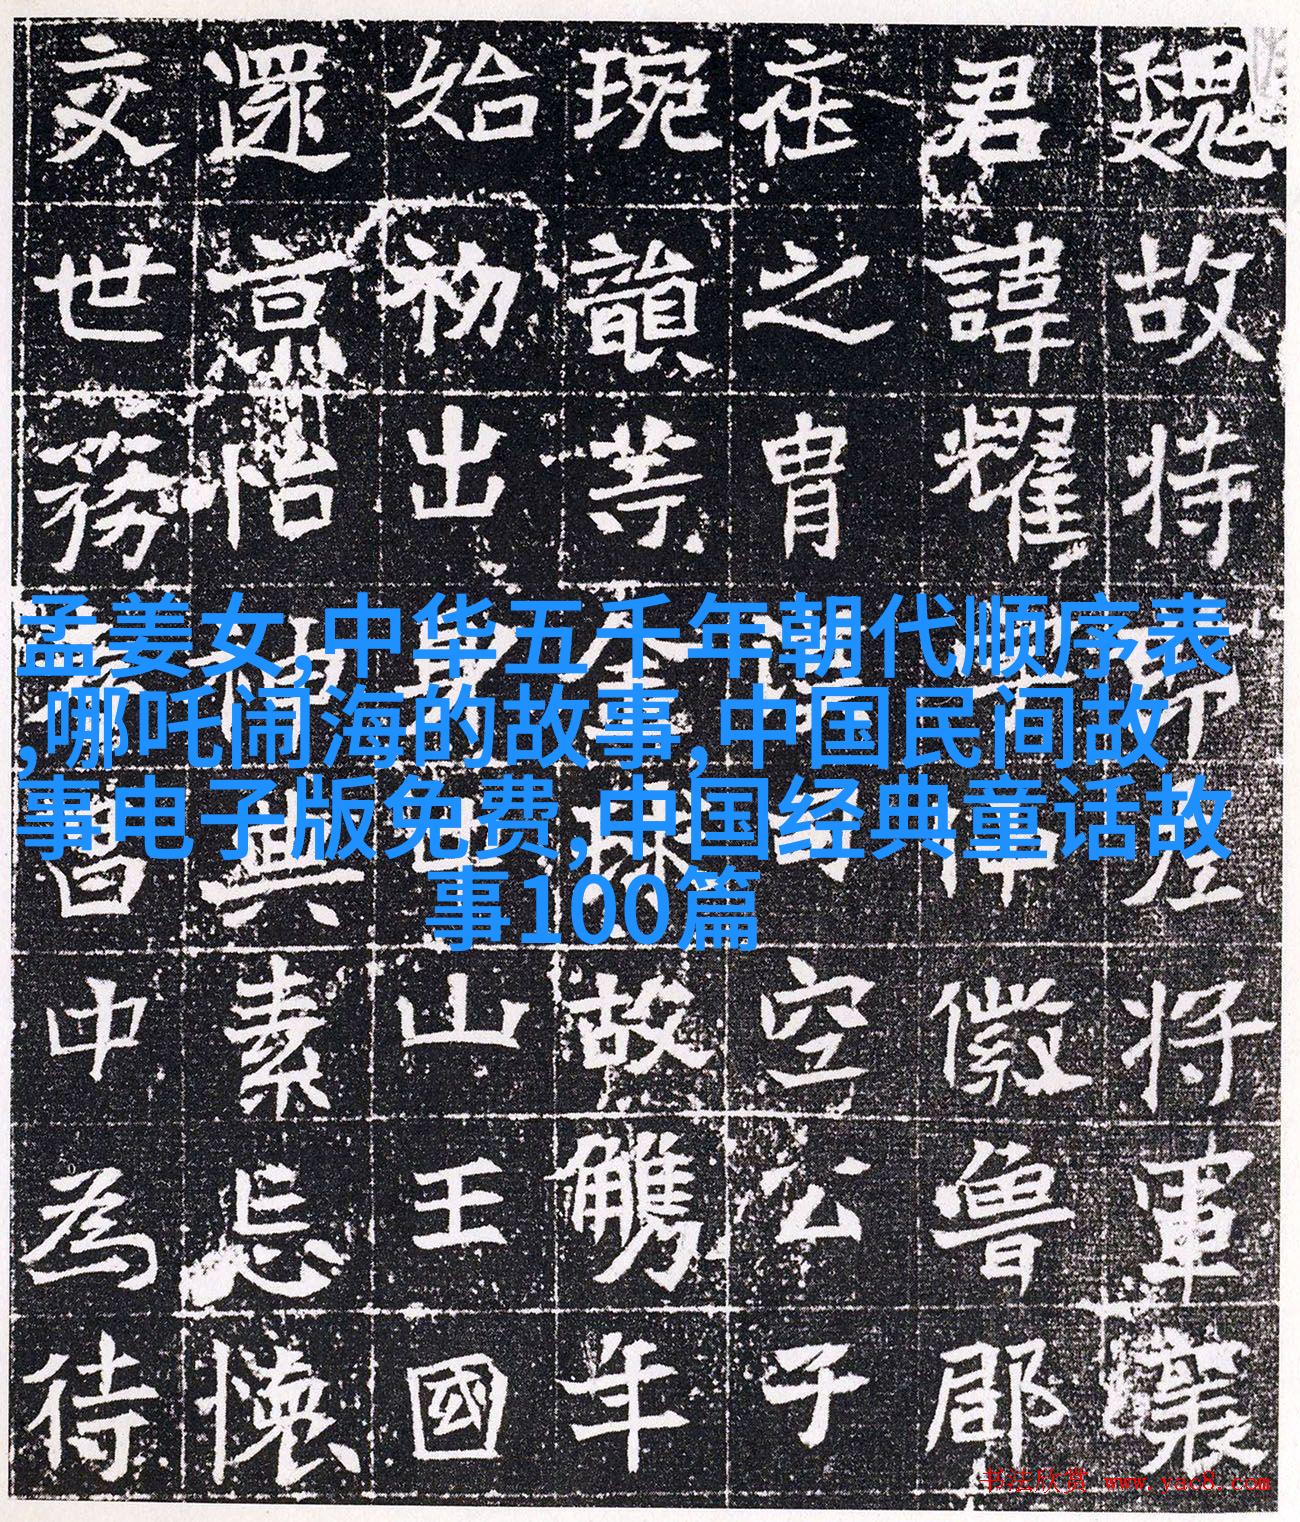 魏故持将軍襄
君諱耀徽魯郡
在之胄空公子
琬韻等故觹年
始初出身山王國
景怡神典素忘懷
交世務中為待
孟姜女,中华五千年朝代顺序表
,哪吒闹海的故事,中国民间故
事电子版免费,中国经典童话故
事100篇
书法欣赏 www.yac8.com